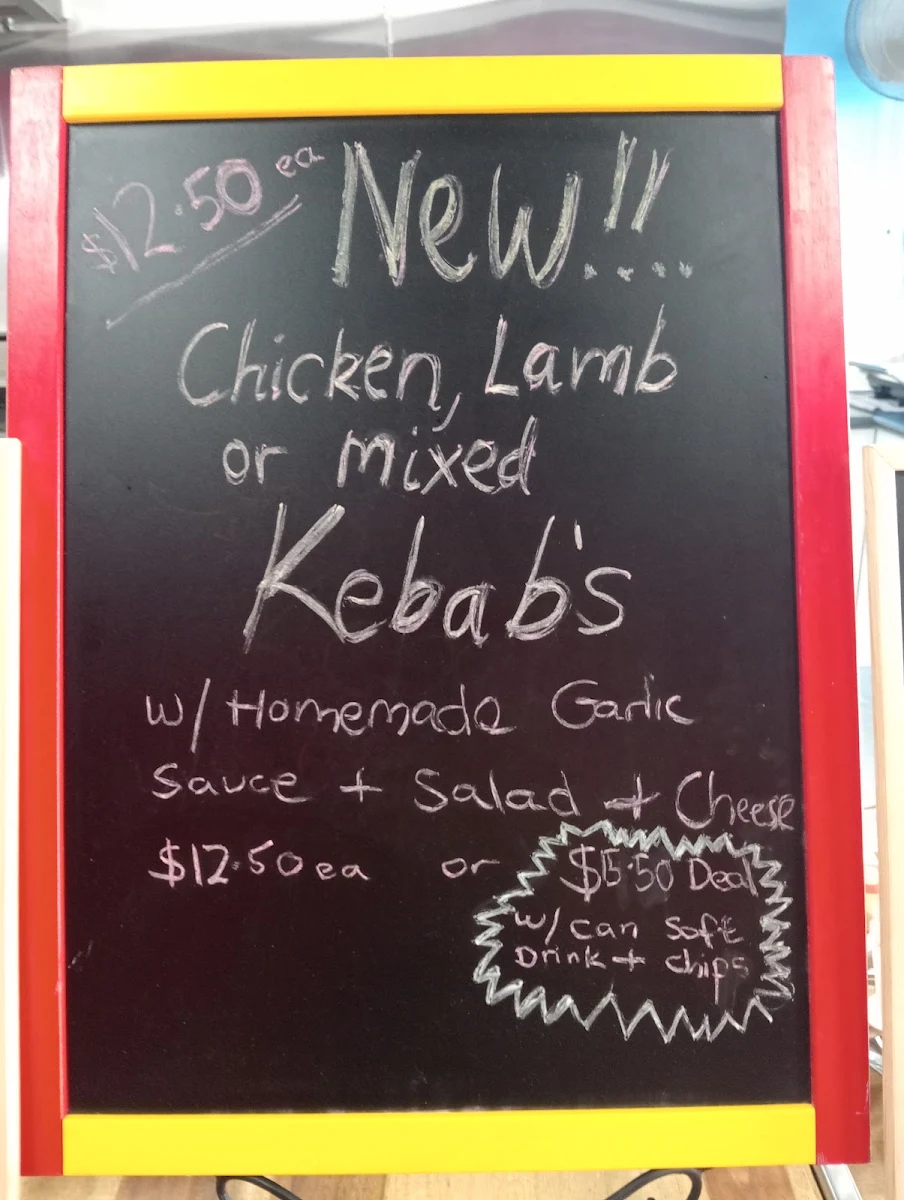 $12.50 ea
New!!....
Chicken, Lamb
or mixed
Kebab's
w/ Homemade Garlic
Sauce + Salad + Cheese
$12.50 ea or $15.50 Deal
w/ can Soft
Drink + chips